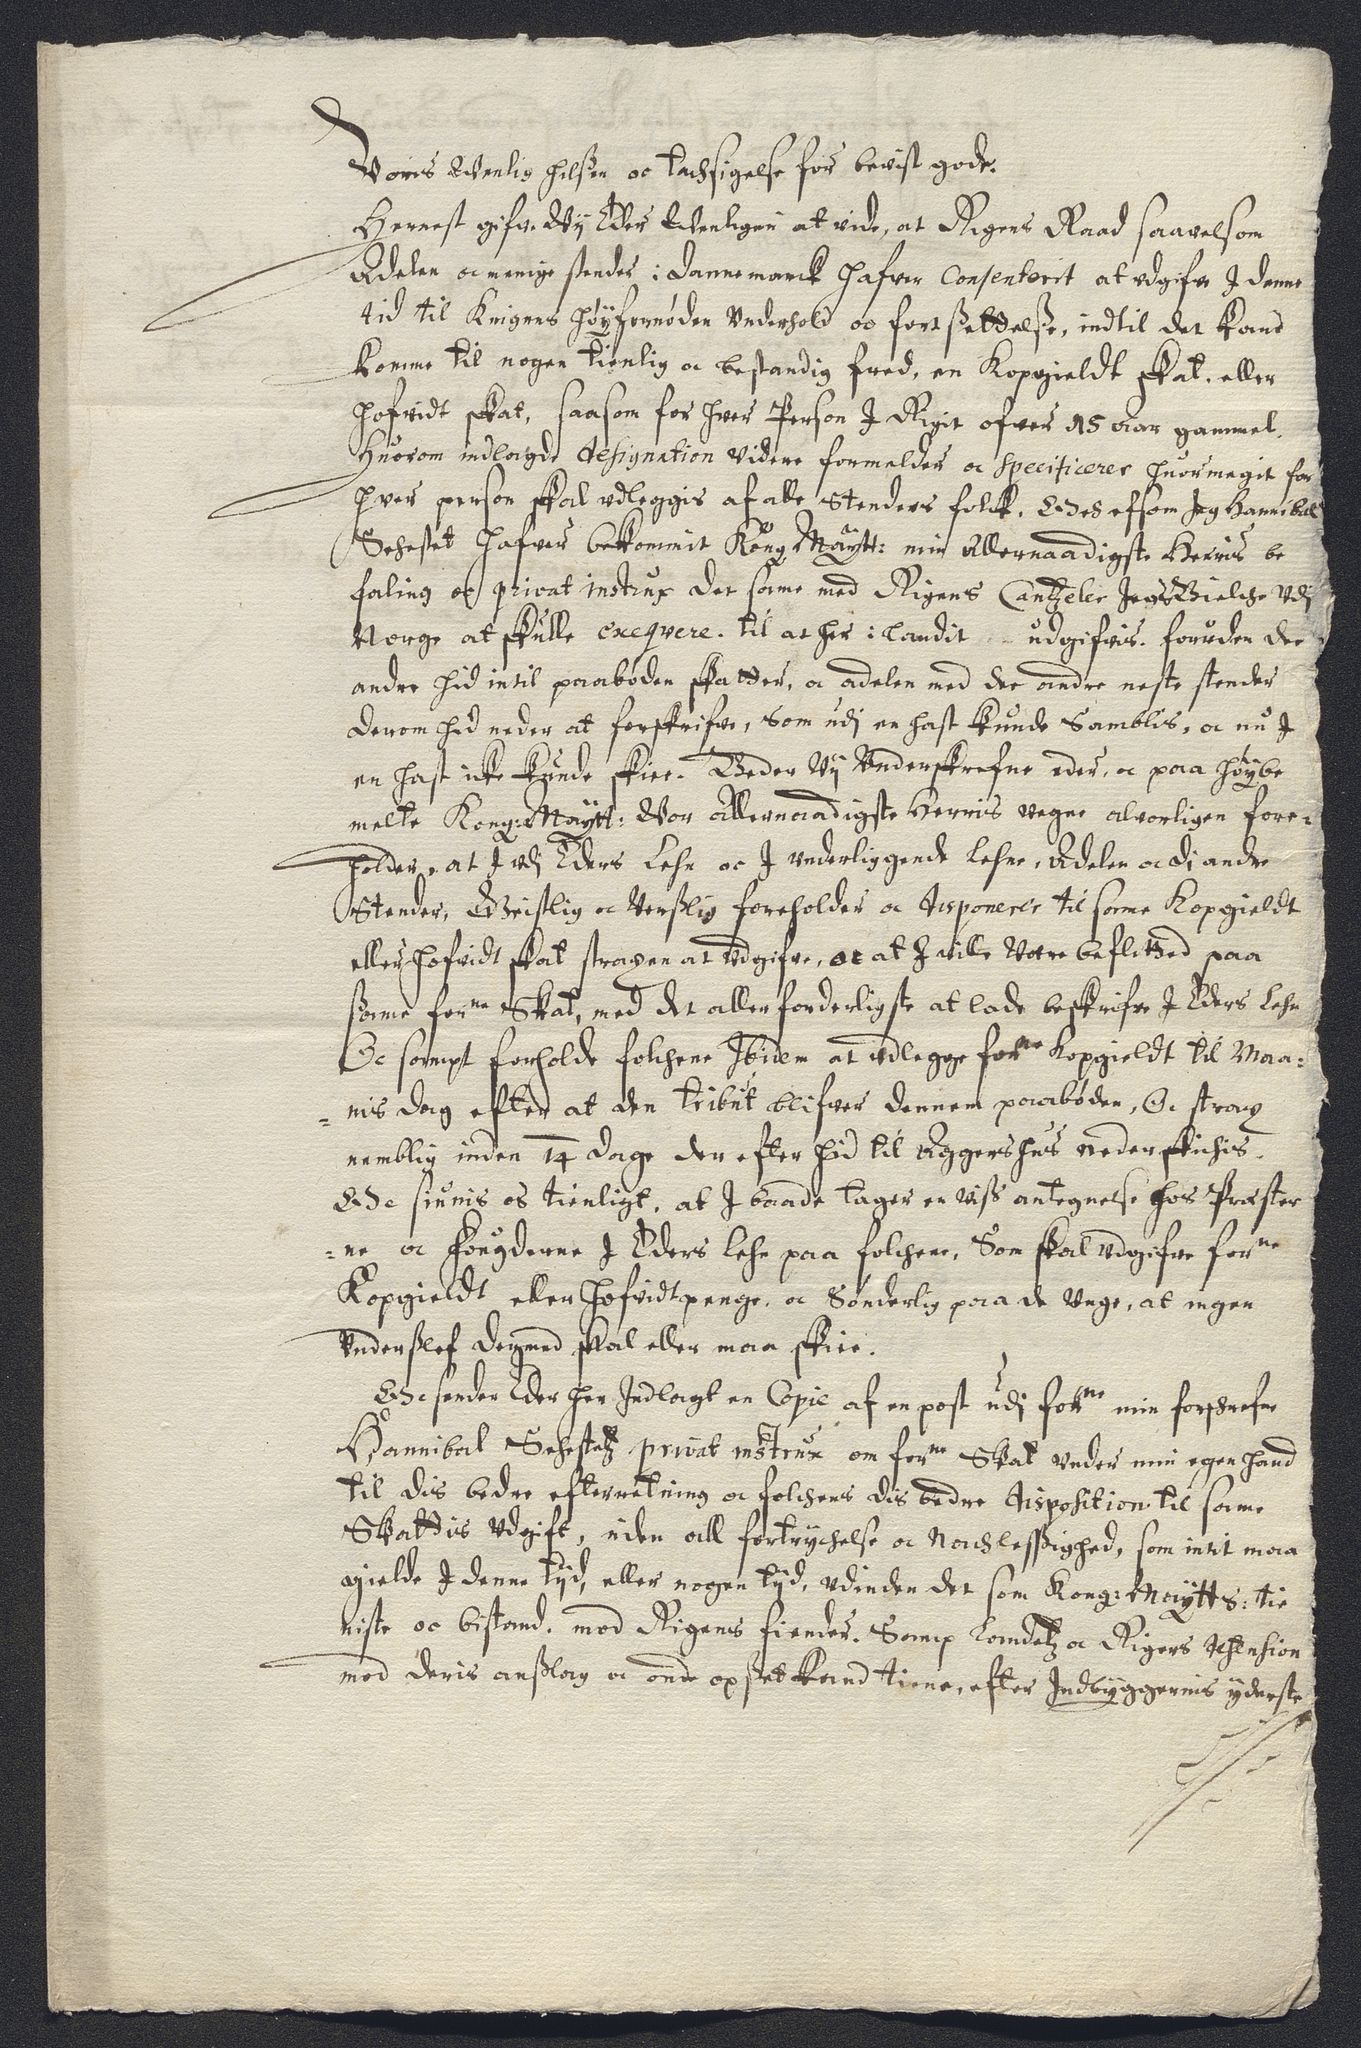 Voris Wenlig hilsen oc tachsigelse for bevist gode.
Hernest gifve Wij Eder Wenligen at vide, at Rigens Raad saavelsom
Adelen oc menige stender i Dannemarck hafver Consenterit at udgifve J denne
tid til Krigens høyfornøden Underhold oc fortsettelsse, indtil det kand
komme til nogen tienlig oc bestandig fred, en Kopgieldt skat. eller
hofvidt skat, saasom for hver Person J Rigit ofver 15 aar gammel.
Huorom indlagde designation videre formelder oc specificerer huormegit for
hver person skal udleggis af alle Stenders folck. Och efsom Jeg Hannibal
Sehested hafver bekommit Kong. Maytt: min Allernaadigste Herris be
faling oc privat instrux det same med Rigens Cantzeler Jens Bielche Udj
Norge at skulle exeqvere. til at her i landit udgifvis. foruden de
andre hid intil paabøden skatter, oc adelen med de andre neste stender
derom hid neder at forskrifve, som udj en hast kunde Samblis, oc nu J
en hast icke kunde skiee. Beder Vij Underskrefne eder, oc paa høybe
melte Kong: Maytt: Vor Allernaadigste Herris vegne alvorligen fore=
holder, at J udj Eders Lehn oc J underliggende lehne, Adelen oc di andre
Stender, Geistlig oc Verslig foreholder oc disponerer til same Kopgieldt
eller hofvidt skat straxen at udgifve, oc at J ville Være beflitted paa
same forne Skat, med det allerforderligste at lade beskrifve J Eders Lehn
Oc sampt forholde folchene Ibidem at udlegge forne Kopgieldt til Maa=
=nis dag efter at den tribut blifver dennem paabøden, Oc strax
nemblig inden 14 dage der efter hid til Aggershus nederskichis.
Och siunis os tienligt, at J baade tager en viss antegnelse hos Præster
=ne oc fougderne J Eders Lehn paa folchene, Som skal udgifve forne
Kopgieldt eller hofvidtpenge, oc Sønderlig paa de Unge, at ingen
Underslef dermed skal eller maa skiee.
Och sender Eder her Indlagt en Copie af en post udj forne min forskrefne
Hannibal Sehestetz privat instrux om forne Skat under min egen hand
til dis bedre efterretning oc folchens dis bedre disposition til same
Skattis Udgift, uden all fortrychelse oc Nachlessighed, som intit maa
gielde J denne tijd, eller nogen tijd, udinden det som Kong: Maytts: tie
niste oc bistand. mod Rigens fiender. Samp Landetz oc Rigers defension
mod deris anslag oc onde opset kand tiene, efter Indbyggernis yderste